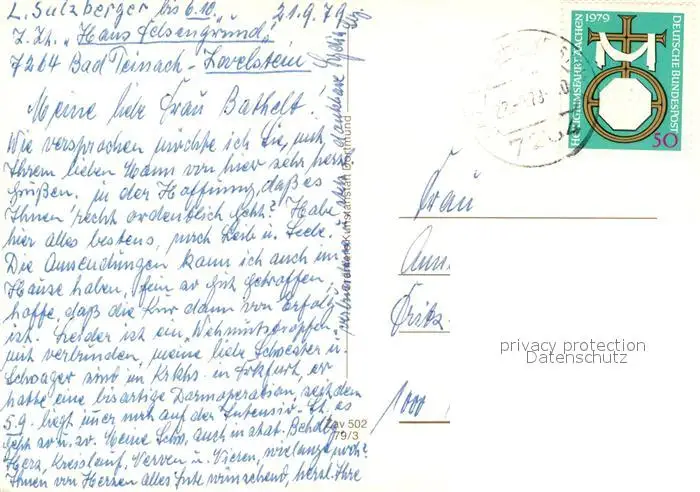 L. Sulzberger bis 6.10. 21.9.79
z. Zt. "Haus Felsengrund"
7264 Bad Teinach-Zavelstein
Meine liebe Frau Bathelt.
Wie versprochen möchte ich Sie, mit
Ihrem lieben Mann von hier sehr herzl.
grüßen. in der Hoffnung, daß es
Ihnen recht ordentlich geht? Habe
hier alles bestens, nach Leib u. Seele.
Die Anwendungen kann ich auch im
Hause haben, fein so gut getroffen,
hoffe, daß die Kur dann von Erfolg
ist. Leider ist ein "Wehmutströpfen"
mit verbinden, meine liebe Schwester u.
Schwager sind im Krkhs. in Frkfurt, er
hatte eine bösartige Darmoperation, seit dem
5.9. liegt immer noch auf der Intensiv-St. es
geht so u. so. Meine Schw. auch in stat. Behdlg.
Herz, Kreislauf, Nerven u. Nieren, wie lange noch?
Ihnen von Herzen alles Gute wünschend, herzl. Ihre
dankbare Lydia Sulzberger
Kunstanstalt Dortmund
av 502
79/3
HEILIGTUMSFAHRT AACHEN 1979
DEUTSCHE BUNDESPOST
50
Frau
Ann
Fritz
1000
privacy protection
Datenschutz